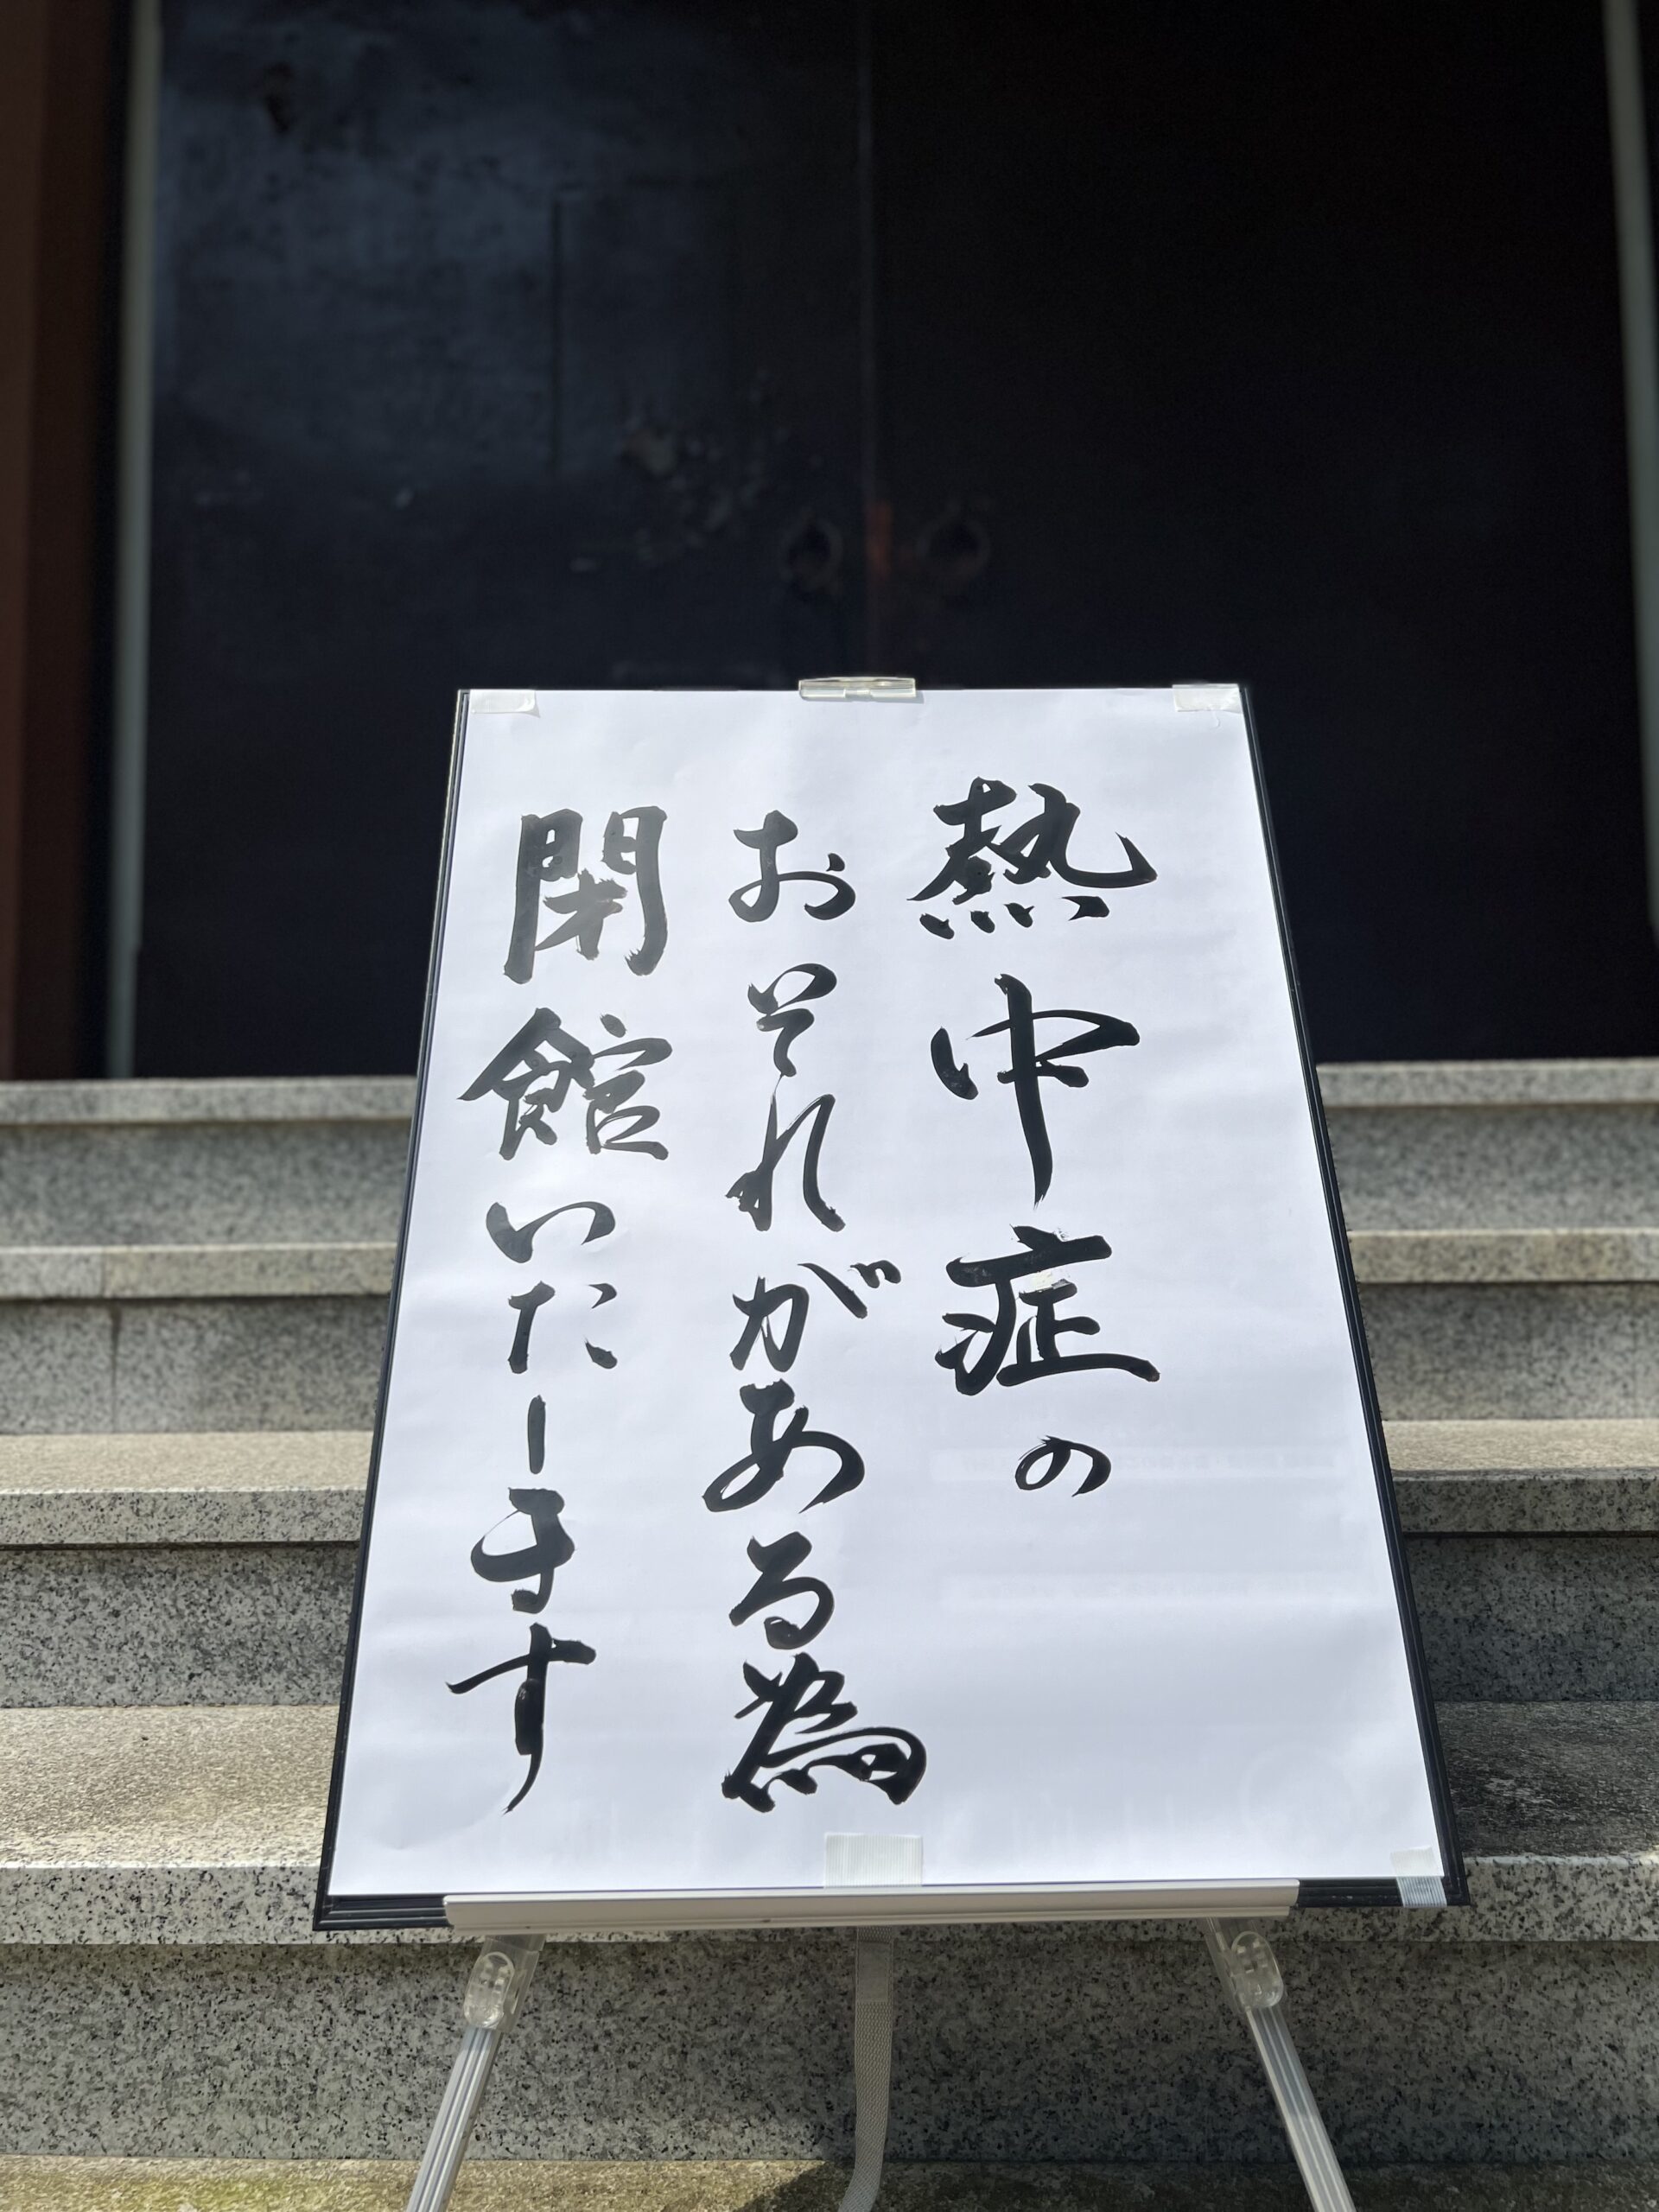 熱中症の
おそれがある為
閉館いたします